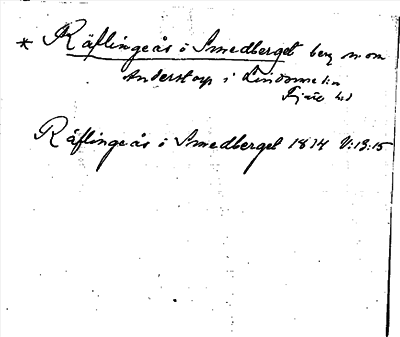 * Räflingeås i Smedberget berg n om
Anderstorp i Lindome sn
Fjäre hd
Räflingeås i Smedberget 1814 V:13:15